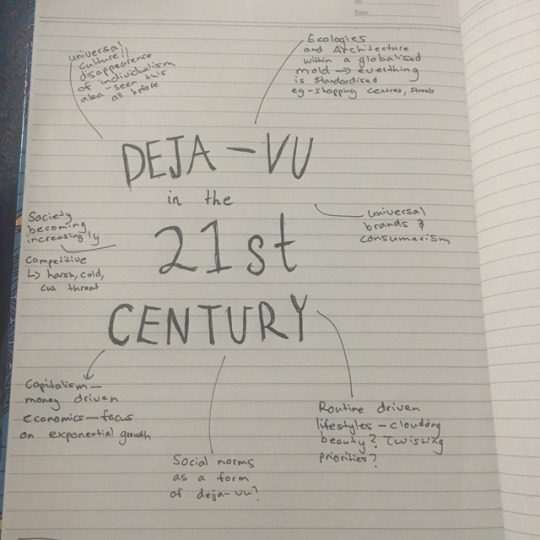 Date:
universal
culture||
disappearence
of individualism
aka - seen this
all before
Ecologies
and Architecture
within a globalised
mold → everything
is standardised
eg - shopping centres, streets
DEJA-VU
in the
21st
CENTURY
Society
becoming
increasingly
Competitive
↳ harsh, cold,
cut throat
universal
brands &
consumerism
Capitalism —
money driven
economics — focus
on exponential growth
Social norms
as a form
of deja-vu?
Routine driven
lifestyles - clouding
beauty? Twisting
priorities?